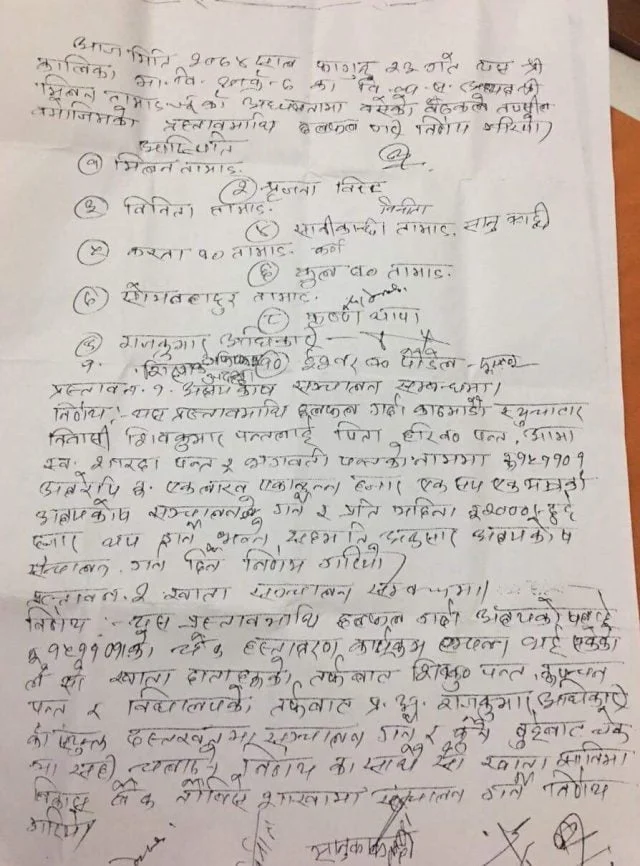 आज मिति २०७४ साल फागुन २३ गते यस श्री
कालिका मा. वि. का वि. व्य. स. अध्यक्ष श्री
मिलन तामाङ ज्यूको अध्यक्षतामा बसेको बैठकले तपशील
बमोजिमको प्रस्तावमाथि छलफल गरी निर्णय गरियो।
उपस्थिति
१ मिलन तामाङ
२ विष्ट
३ विनिता तामाङ विनीता
४ तामाङ सानु कान्छी
५ ब० तामाङ
६ फूल ब० तामाङ
७ सोमबहादुर तामाङ
८ कृष्ण थापा
९ राजकुमार अधिकारी
१०) ईश्वर ब० पौडेल
प्रस्ताव नं. १. अक्षयकोष सञ्चालन सम्बन्धमा।
निर्णय :- यस प्रस्तावमाथि छलफल गर्दा काठमाडौं
निवासी शिवकुमार पन्तलाई पिता हरिब० पन्त, आमा
स्व. शारदा पन्त र भगवती पन्तको नाममा रु १५११०१
अक्षरेपि रु. एकलाख एकाउन्न हजार एक सय एक बराबरको
अक्षयकोष सञ्चालन गर्ने र प्रति महिना रु २०००/- दुई
हजार थप गर्ने भन्ने सहमति अनुसार अक्षयकोष
सञ्चालन गर्न दिने निर्णय गरियो।
प्रस्ताव नं. २ खाता सञ्चालन सम्बन्धमा।
निर्णय :- यस प्रस्तावमाथि छलफल गर्दा अक्षयकोषलाई
रु १५११०१ को चेक हस्तान्तरण कार्यक्रम सम्पन्न भई सकेको
ले सो खाता दाताहरुको तर्फबाट शिवकु० पन्त,
पन्त र विद्यालयको तर्फबाट प्र. अ. राजकुमार अधिकारी
को संयुक्त दस्तखतमा सञ्चालन गर्ने र कुनै दुईबाट चेक
मा सही चलाउने निर्णय का साथै सो खाता
विकास बैंक शाखामा सञ्चालन गर्ने निर्णय
गरियो।
सानुकान्छी